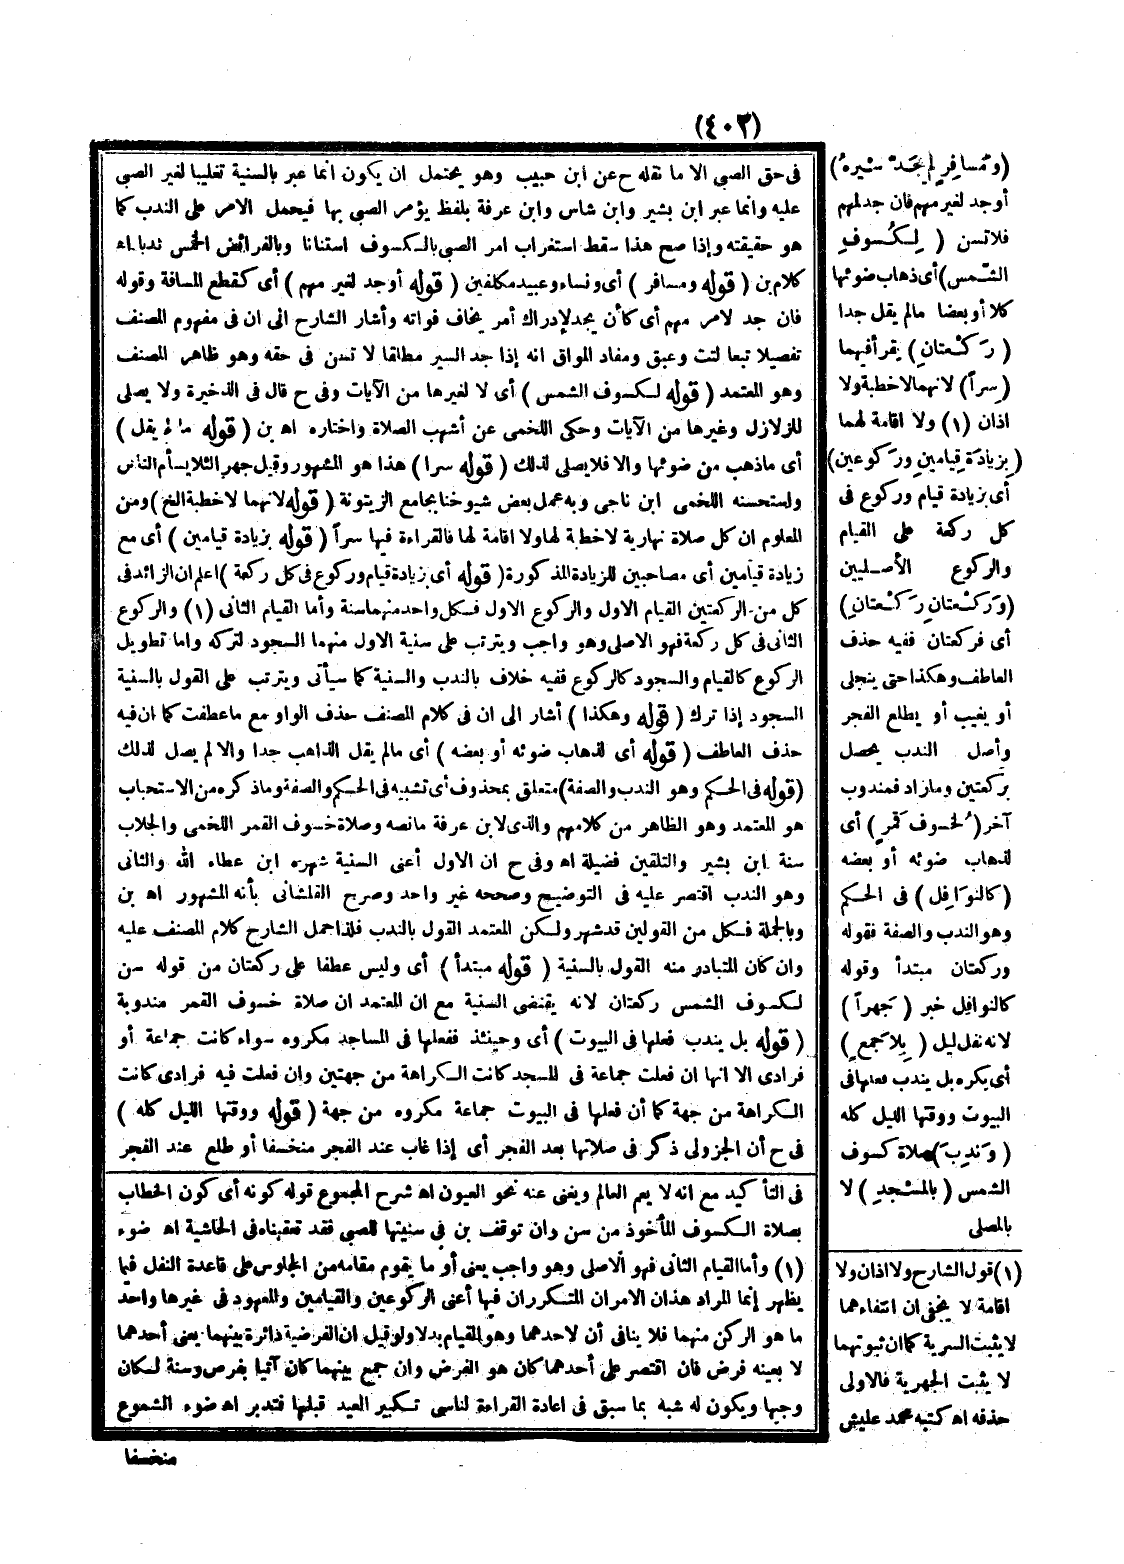 (٤٠٣)
(ومسافر لم يجد سيره)
أوجد لغير مهم فان جد لمهم
فلا تسن ( لكسوف
الشمس) أى ذهاب ضوئها
كلا أو بعضا مالم يقل جدا
( ركعتان ) يقرأ فيهما
(سراً) لانهما لا خطبة ولا
اذان (١) ولا اقامة لهما
(بزيادة قيامين وركوعين)
أى بزيادة قيام وركوع فى
كل ركعة على القيام
والركوع الأصليين
(وركعتان ركعتان)
أى فركعتان ففيه حذف
العاطف وهكذا حتى ينجلى
أو يغيب أو يطلع الفجر
وأصل الندب يحصل
بركعتين وما زاد فمندوب
آخر (لخسوف قمر) أى
لذهاب ضوئه أو بعضه
(كالنوافل ) فى الحكم
وهو الندب والصفة فقوله
وركعتان مبتدأ وقوله
كالنوافل خبر ( جهراً )
لانه نفل ليل ( بلا جمع )
أى يكره بل يندب فعلها فى
البيوت ووقتها الليل كله
( وندب) صلاة كسوف
الشمس ( بالمسجد ) لا
بالمصلى
(١) قول الشارح ولا اذان ولا
اقامة لا يخفى ان انتفاءهما
لا يثبت السرية كما ان ثبوتهما
لا يثبت الجهرية فالاولى
حذفه اه كتبه محمد عليش
فى حق الصبى الا ما نقله ح عن ابن حبيب وهو يحتمل ان يكون انما عبر بالسنية تغليبا لغير الصبى
عليه وانما عبر ابن بشير وابن شاس وابن عرفة بلفظ يؤمر الصبى بها فيحمل الامر على الندب كما
هو حقيقته وإذا صح هذا سقط استغراب امر الصبى بالكسوف استنانا وبالفرائض الخمس ندبا اه
كلام بن ( قوله ومسافر ) أى ونساء وعبيد مكلفين ( قوله أوجد لغير مهم ) أى كقطع المسافة وقوله
فان جد لامر مهم أى كأن يجد لإدراك أمر يخاف فواته وأشار الشارح الى ان فى مفهوم المصنف
تفصيلا تبعا لتت وعبق ومفاد المواق انه إذا جد السير مطلقا لا تسن فى حقه وهو ظاهر المصنف
وهو المعتمد ( قوله لكسوف الشمس ) أى لا لغيرها من الآيات وفى ح قال فى الذخيرة ولا يصلى
للزلازل وغيرها من الآيات وحكى اللخمى عن أشهب الصلاة واختاره اه بن ( قوله ما لم يقل )
أى ماذهب من ضوئها والا فلا يصلى لذلك ( قوله سرا ) هذا هو المشهور وقيل جهر الثلا يسأم الناس
واستحسنه اللخمى ابن ناجى وبه عمل بعض شيوخنا بجامع الزيتونة ( قوله لانهما لا خطبة الخ) ومن
المعلوم ان كل صلاة نهارية لا خطبة لها ولا اقامة لها فالقراءة فيها سراً ( قوله بزيادة قيامين ) أى مع
زيادة قيامين أى مصاحبين للزيادة المذكورة ( قوله أى بزيادة قيام وركوع فى كل ركعة ) اعلم ان الزائد فى
كل من الركعتين القيام الاول والركوع الاول فكل واحد منهما سنة وأما القيام الثانى (١) والركوع
الثانى فى كل ركعة فهو الاصلى وهو واجب ويترتب على سنية الاول منهما السجود لتركه واما تطويل
الركوع كالقيام والسجود كالركوع ففيه خلاف بالندب والسنية كما سيأتى ويترتب على القول بالسنية
السجود إذا ترك ( قوله وهكذا ) أشار الى ان فى كلام المصنف حذف الواو مع ماعطفت كما ان فيه
حذف العاطف ( قوله أى لذهاب ضوئه أو بعضه ) أى مالم يقل الذاهب جدا والا لم يصل لذلك
(قوله فى الحكم وهو الندب والصفة) متعلق بمحذوف أى تشبيه فى الحكم والصفة وماذكره من الاستحباب
هو المعتمد وهو الظاهر من كلامهم والذى لابن عرفة مانصه وصلاة خسوف القمر اللخمى والجلاب
سنة ابن بشير والتلقين فضيلة اه وفى ح ان الاول أعنى السنية شهره ابن عطاء الله والثانى
وهو الندب اقتصر عليه فى التوضيح وصححه غير واحد وصرح القلشانى بأنه المشهور اه بن
وبالجملة فكل من القولين قد شهر ولكن المعتمد القول بالندب فلذا حمل الشارح كلام المصنف عليه
وان كان المتبادر منه القول بالسنية ( قوله مبتدأ ) أى وليس عطفا على ركعتان من قوله سن
لكسوف الشمس ركعتان لانه يقتضى السنية مع ان المعتمد ان صلاة خسوف القمر مندوبة
( قوله بل يندب فعلها فى البيوت ) أى وحينئذ ففعلها فى المساجد مكروه سواء كانت جماعة أو
فرادى الا انها ان فعلت جماعة فى المسجد كانت الكراهة من جهتين وان فعلت فيه فرادى كانت
الكراهة من جهة كما أن فعلها فى البيوت جماعة مكروه من جهة ( قوله ووقتها الليل كله )
فى ح أن الجزولى ذكر فى صلاتها بعد الفجر أى إذا غاب عند الفجر منخسفا أو طلع عند الفجر
فى التأكيد مع انه لا يعم العالم ويغنى عنه نحو العيون اه شرح المجموع قوله كونه أى كون الخطاب
بصلاة الكسوف المأخوذ من سن وان توقف بن فى سنيتها للصبى فقد تعقبناه فى الحاشية اه ضوء
(١) وأما القيام الثانى فهو الأصلى وهو واجب يعنى أو ما يقوم مقامه من الجلوس على قاعدة النفل فيما
يظهر إنما المراد هذان الامران المتكرران فيها أعنى الركوعين والقيامين والمعهود فى غيرها واحد
ما هو الركن منهما فلا ينافى أن لاحدهما وهو القيام بدلا ولو قيل ان الفرضية دائرة بينهما يعنى أحدهما
لا بعينه فرض فان اقتصر على أحدهما كان هو الفرض وان جمع بينهما كان آتيا بفرض وسنة لكان
وجيها ويكون له شبه بما سبق فى اعادة القراءة لناسى تكبير العيد قبلها فتدبر اه ضوء الشموع
منخسفا